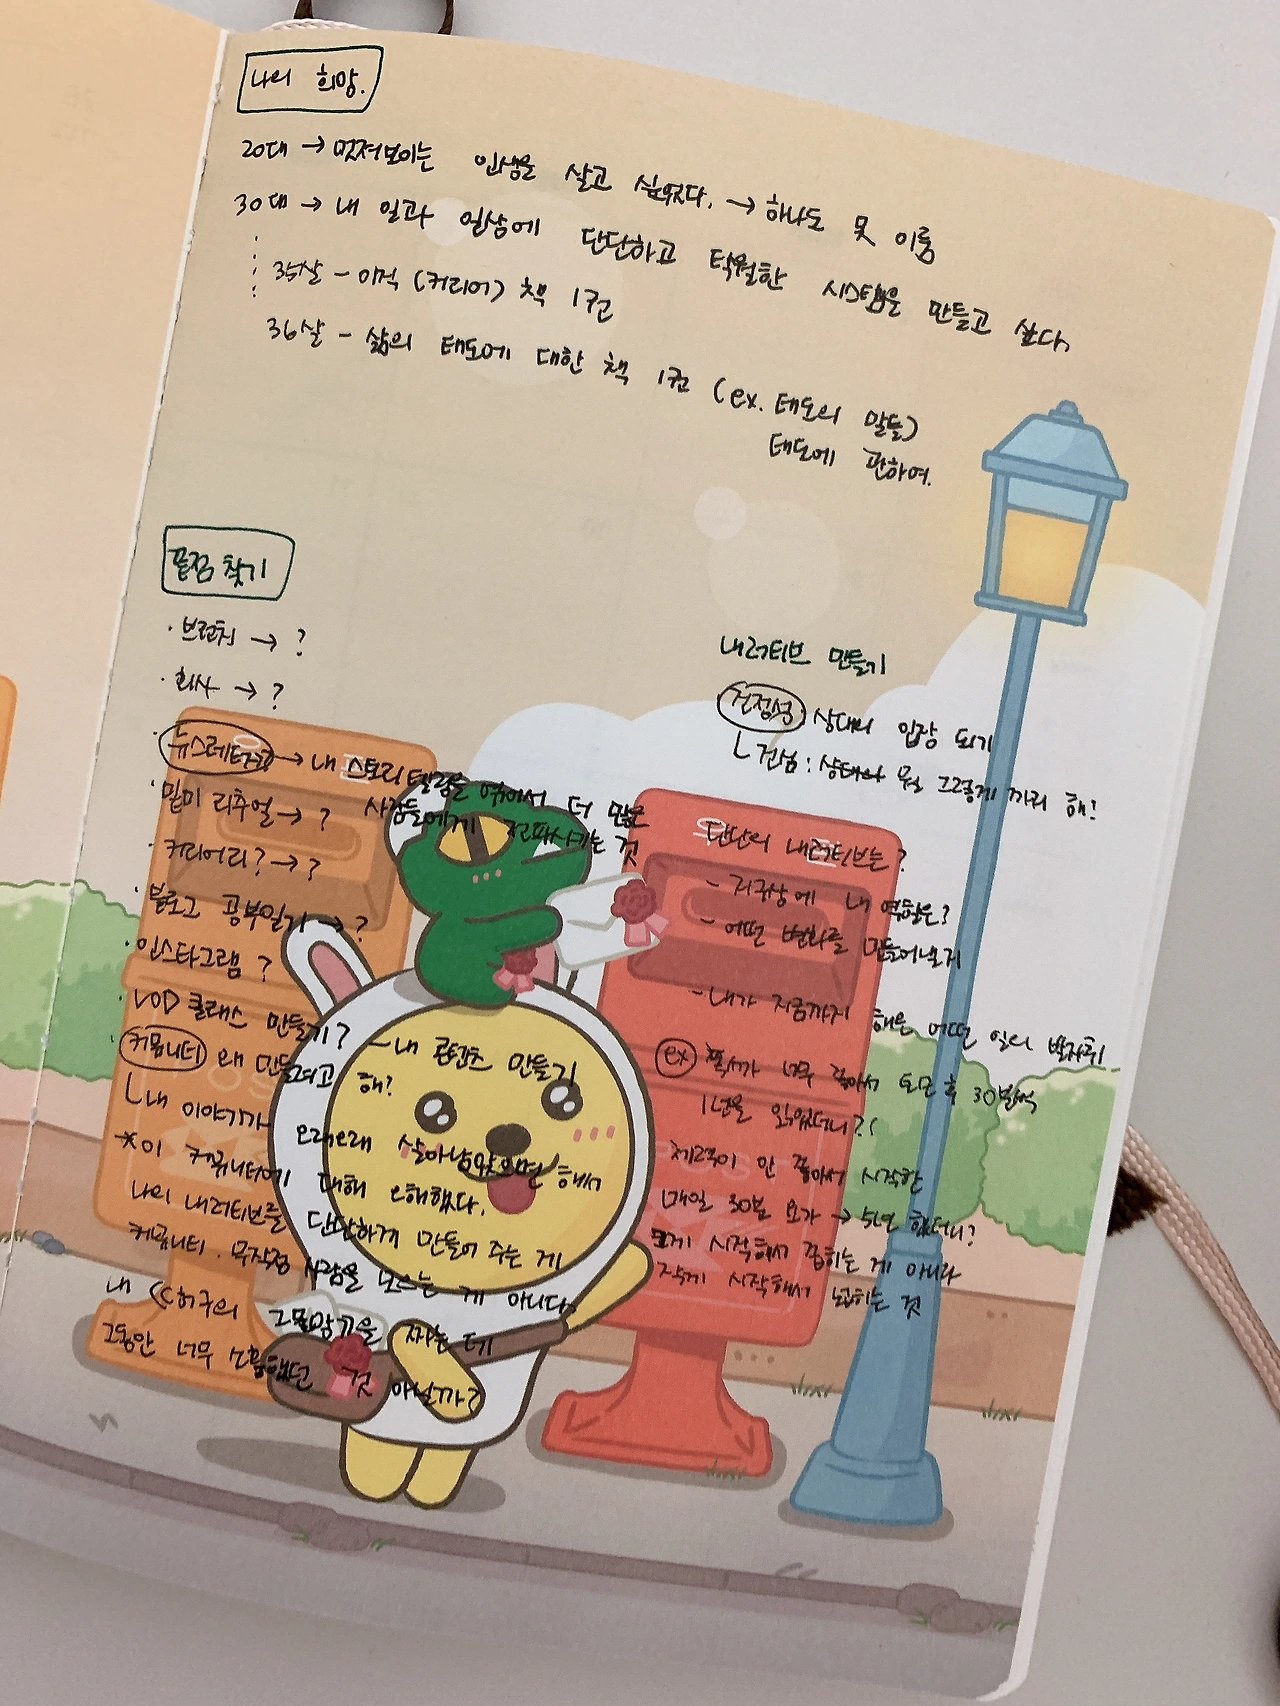 나의 희망.
20대 → 멋져보이는 인생을 살고 싶었다. → 하나도 못 이룸
30대 → 내 일과 일상에 단단하고 탁월한 시스템을 만들고 싶다.
35살 - 이직 (커리어) 책 1권
36살 - 삶의 태도에 대한 책 1권 (ex. 태도의 말들)
태도에 관하여.
끝점 찾기
· 브런치 → ?
· 회사 → ?
· 뉴스레터 → 내 스토리텔링을 엮어서 더 많은
사람들에게 전파시키는 것
· 밑미 리추얼 → ?
· 커리어리? → ?
· 블로그 공부일기 → ?
· 인스타그램 ?
· VOD 클래스 만들기? - 내 콘텐츠 만들기
· 커뮤니티 왜 만들려고 해?
ㄴ 내 이야기가 오래오래 살아남았으면 해서
* 이 커뮤니티에 대해 오해했다.
나의 내러티브를 단단하게 만들어 주는 게
커뮤니티. 무작정 사람을 모으는 게 아니다.
내 <<허구의 그물망>>을 짜는 데
그동안 너무 소홀했던 것 아닐까?
내러티브 만들기
진정성 상대의 입장 되기
ㄴ 진심 : 상대와 뭘 그렇게 까지 해!
단단의 내러티브는?
- 지구상에 내 역할은?
- 어떤 변화를 만들어낼지
- 내가 지금까지 해온 어떤 일의 발자취!
ex 독서가 너무 좋아서 퇴근 후 30분씩
1년을 읽었더니?!
체력이 안 좋아서 시작한
매일 30분 요가 → 5년 했더니?
크게 시작해서 좁히는 게 아니라
작게 시작해서 넓히는 것